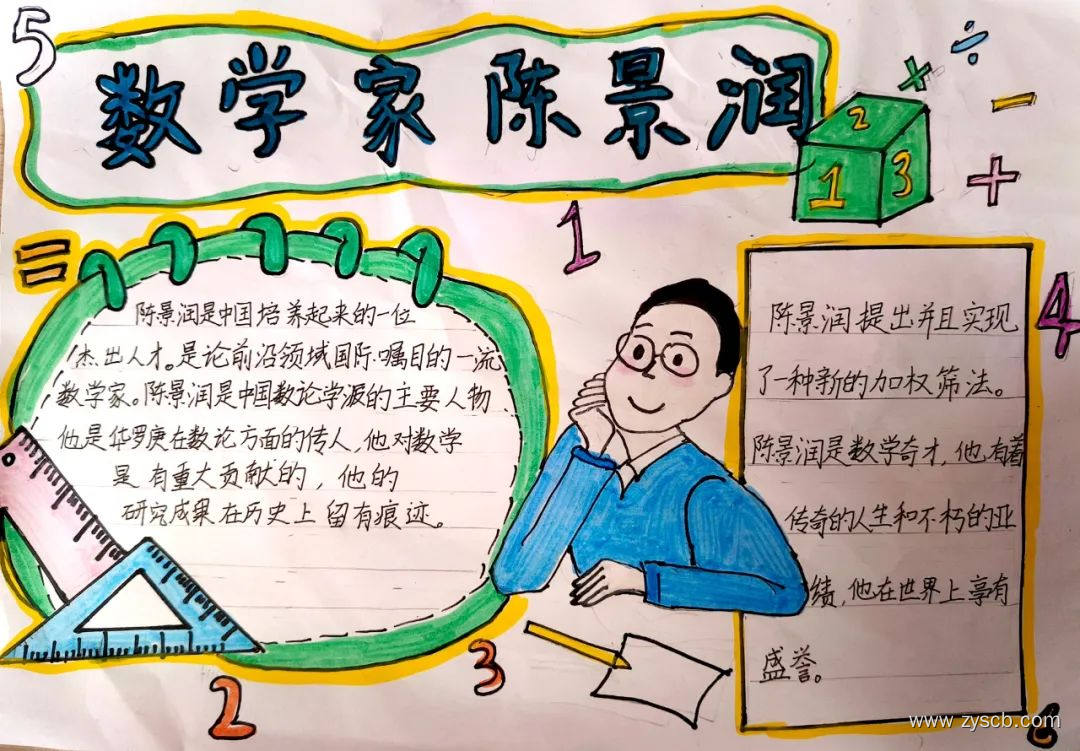 5
数学家陈景润
2
1
3
1
陈景润是中国培养起来的一位
杰出人才。是论前沿领域国际嘱目的一流
数学家。陈景润是中国数论学派的主要人物
他是华罗庚在数论方面的传人,他对数学
是有重大贡献的,他的
研究成果在历史上留有痕迹。
陈景润提出并且实现
了一种新的加权筛法。
陈景润是数学奇才,他有着
传奇的人生和不朽的业
绩,他在世界上享有
盛誉。
4
2
3
6
www.zyscb.com